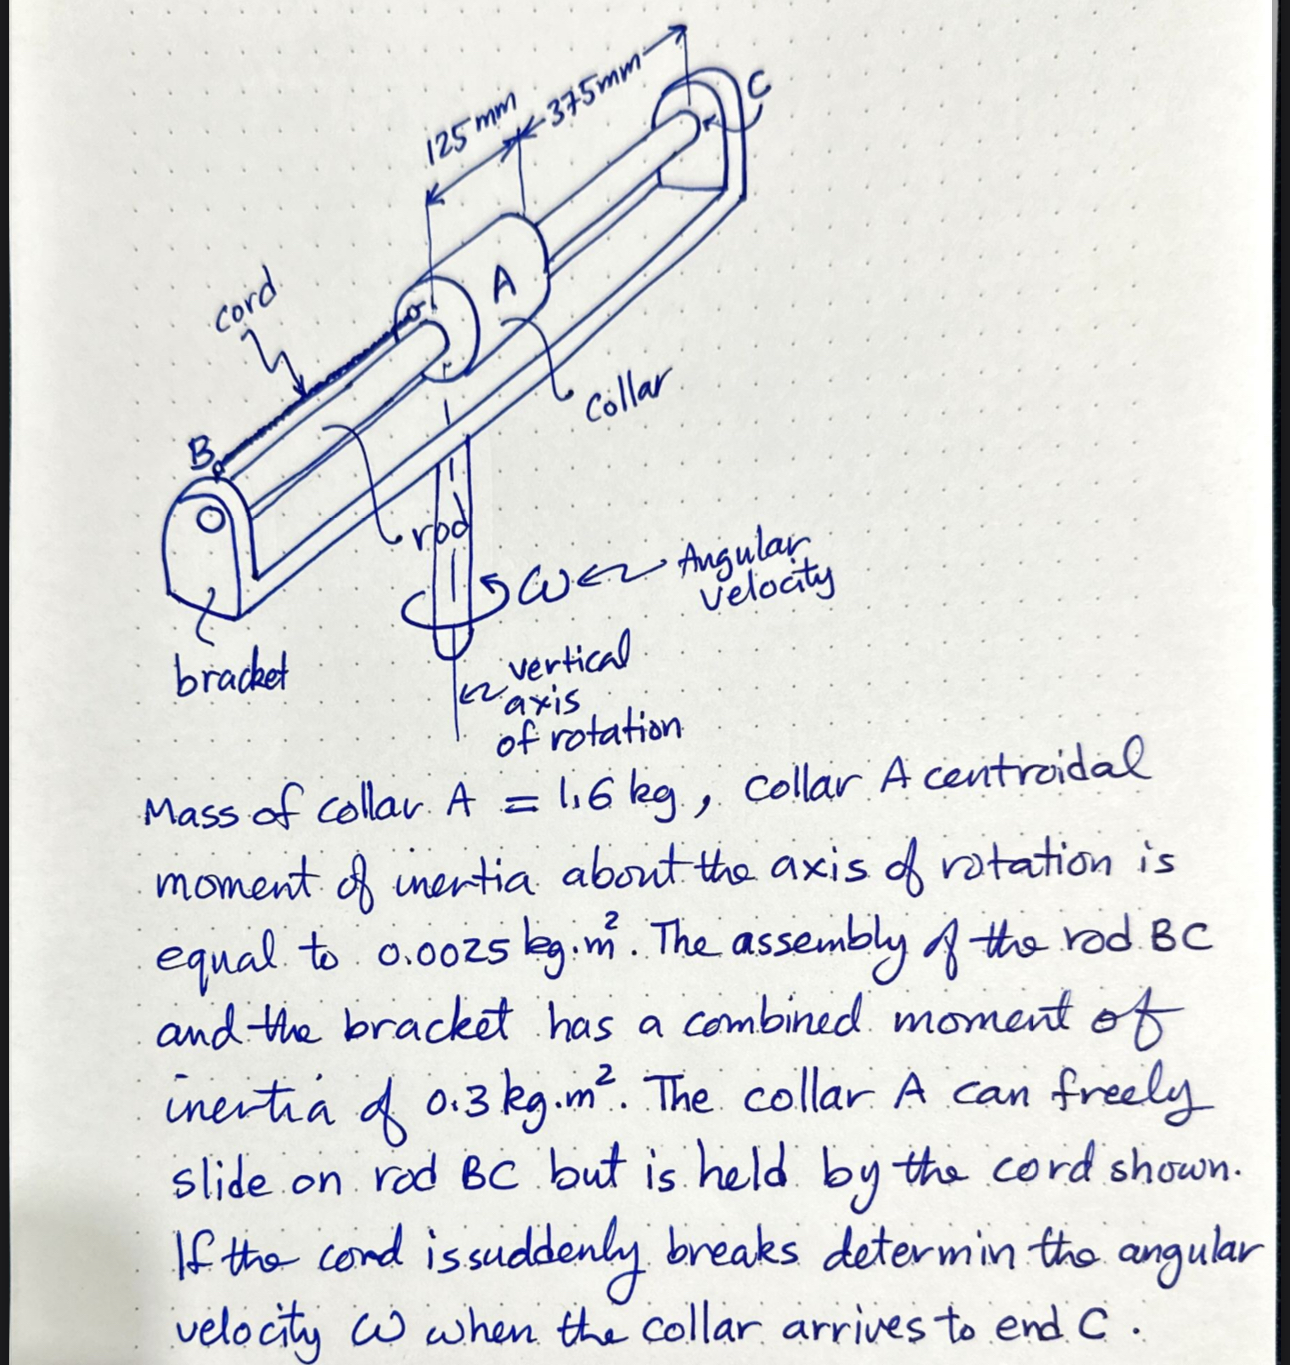 125 mm
375mm
C
A
cord
collar
B
rod
ω
Angular
velocity
bracket
vertical
axis
of rotation
Mass of collar A = 1.6 kg, collar A centroidal
moment of inertia about the axis of rotation is
equal to 0.0025 kg.m². The assembly of the rod BC
and the bracket has a combined moment of
inertia of 0.3 kg.m². The collar A can freely
slide on rod BC but is held by the cord shown.
If the cord is suddenly breaks determin the angular
velocity ω when the collar arrives to end C.